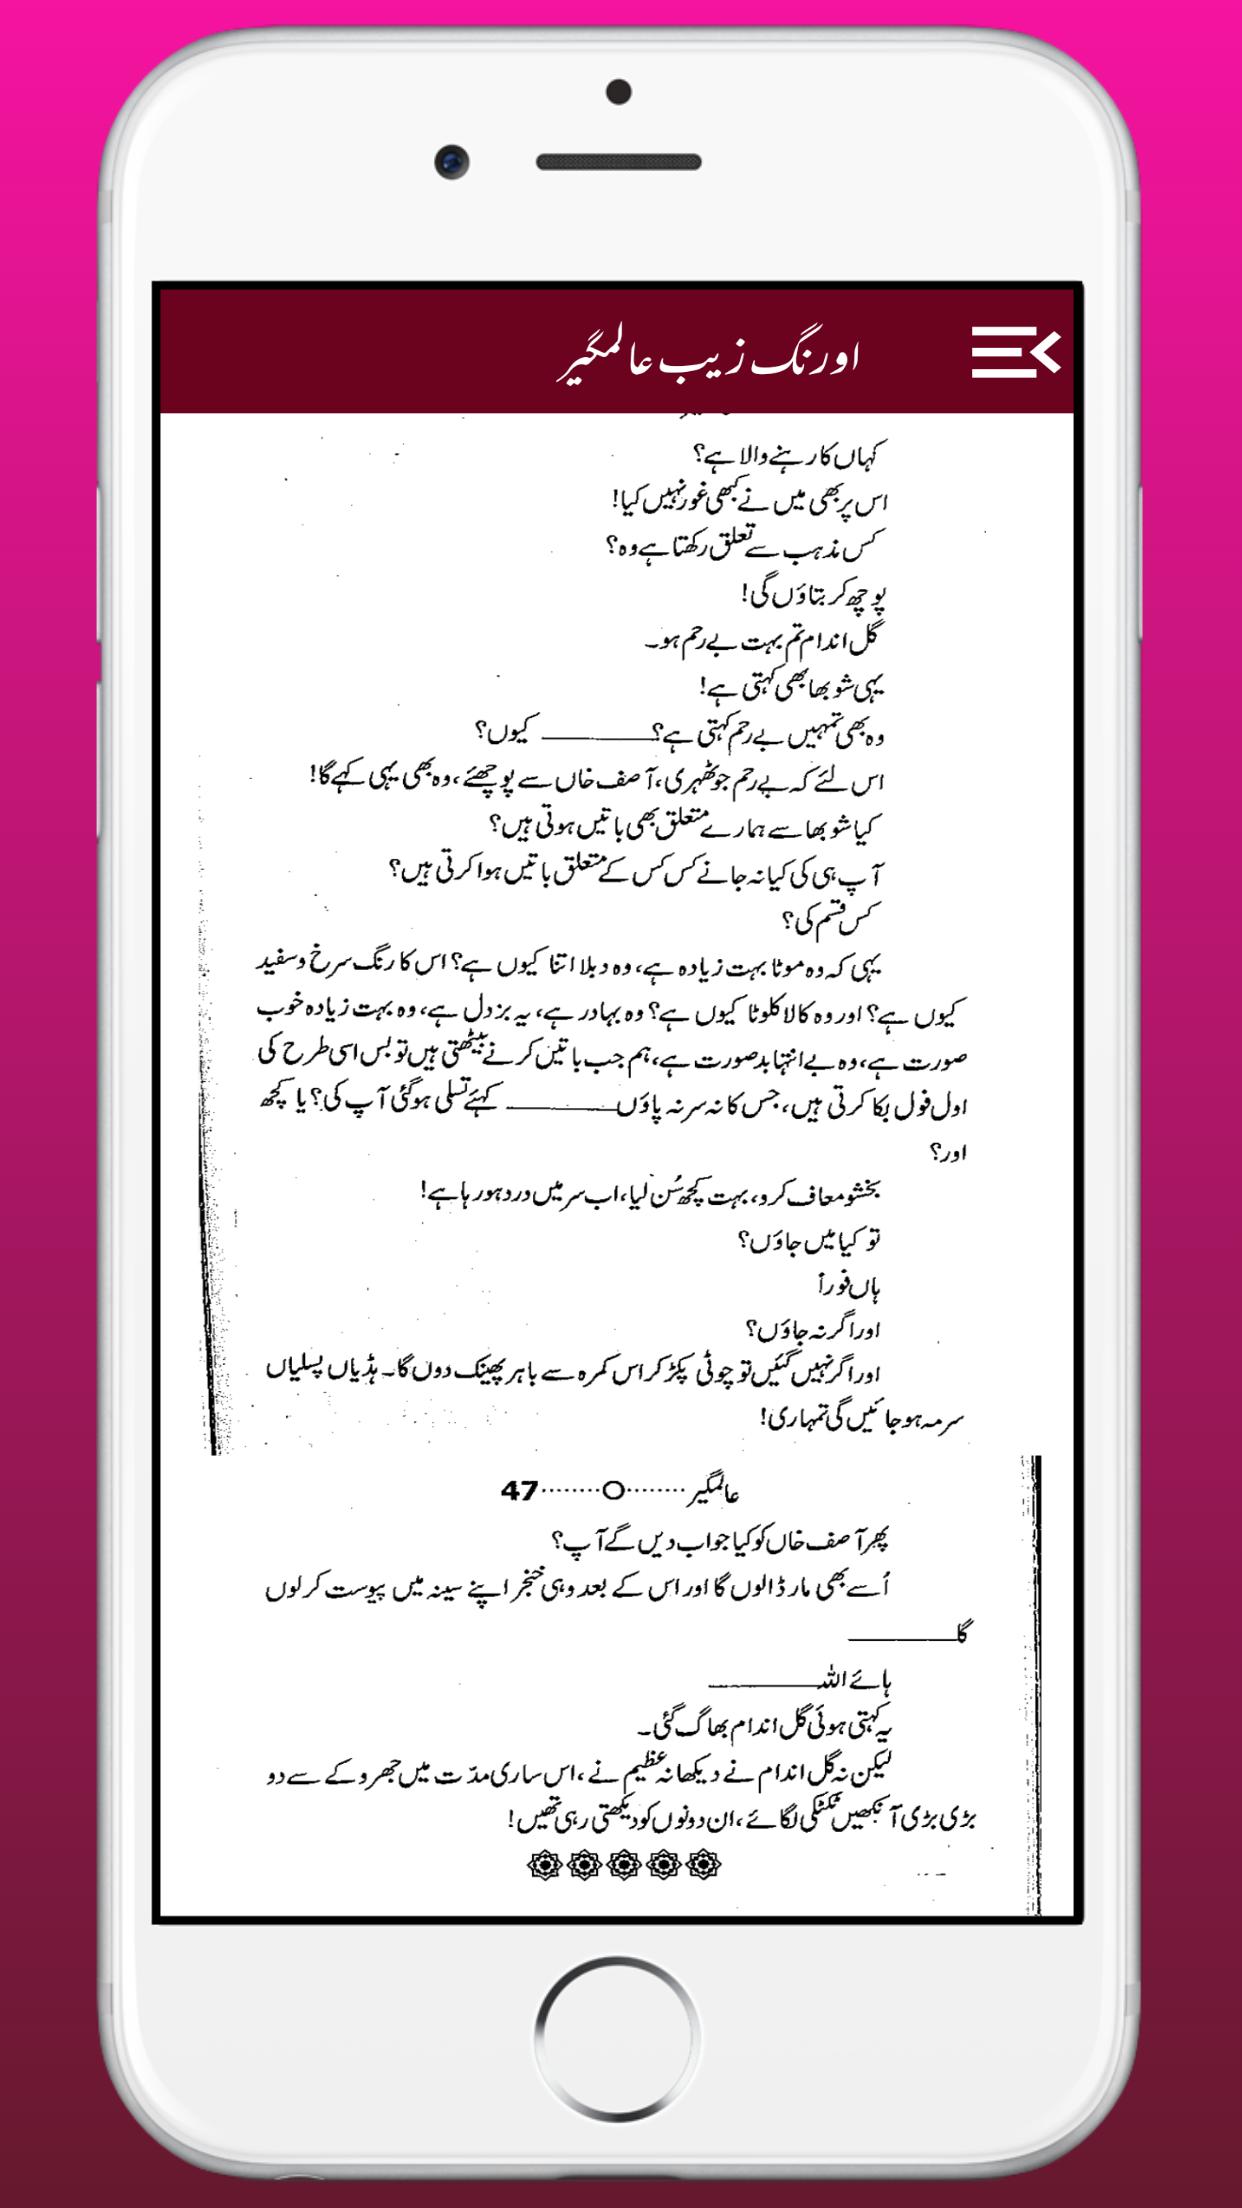 اورنگ زیب عالمگیر
کہاں کا رہنے والا ہے؟
اس پر بھی میں نے کبھی غور نہیں کیا!
کس مذہب سے تعلق رکھتا ہے وہ؟
پوچھ کر بتاؤں گی!
گل اندام تم بہت بے رحم ہو۔
یہی شوبھا بھی کہتی ہے!
وہ بھی تمہیں بے رحم کہتی ہے؟ــــــــــــ کیوں؟
اس لئے کہ بے رحم جو ٹھہری، آصف خاں سے پوچھئے، وہ بھی یہی کہے گا!
کیا شوبھا سے ہمارے متعلق بھی باتیں ہوتی ہیں؟
آپ ہی کی کیا نہ جانے کس کس کے متعلق باتیں ہوا کرتی ہیں؟
کس قسم کی؟
یہی کہ وہ موٹا بہت زیادہ ہے، وہ دبلا اتنا کیوں ہے؟ اس کا رنگ سرخ و سفید
کیوں ہے؟ اور وہ کالا کلوٹا کیوں ہے؟ وہ بہادر ہے، یہ بزدل ہے، وہ بہت زیادہ خوب
صورت ہے، وہ بے انتہا بدصورت ہے، ہم جب باتیں کرنے بیٹھتی ہیں تو بس اسی طرح کی
اول فول بکا کرتی ہیں، جس کا نہ سر نہ پاؤں ــــــــــــ کہئے تسلی ہو گئی آپ کی؟ یا کچھ
اور؟
بخشو معاف کرو، بہت کچھ سُن لیا، اب سر میں درد ہو رہا ہے!
تو کیا میں جاؤں؟
ہاں فوراً
اور اگر نہ جاؤں؟
اور اگر نہیں گئیں تو چوٹی پکڑ کر اس کمرہ سے باہر پھینک دوں گا۔ ہڈیاں پسلیاں
سرمہ ہو جائیں گی تمہاری!
عالمگیر ········O········ 47
پھر آصف خاں کو کیا جواب دیں گے آپ؟
اُسے بھی مار ڈالوں گا اور اس کے بعد وہی خنجر اپنے سینہ میں پیوست کر لوں
گاــــــــــــ
ہائے اللہ ــــــــــــ
یہ کہتی ہوئی گل اندام بھاگ گئی۔
لیکن نہ گل اندام نے دیکھا نہ عظیم نے، اس ساری مدّت میں جھروکے سے دو
بڑی بڑی آنکھیں ٹکٹکی لگائے، ان دونوں کو دیکھتی رہی تھیں!